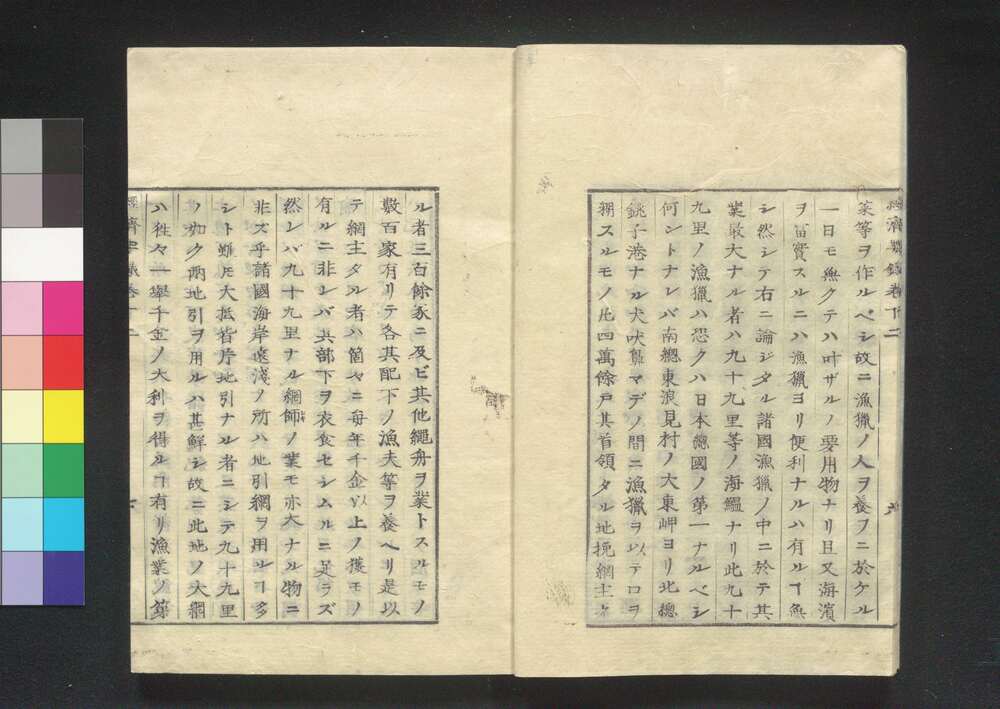 菜等ヲ作ルベシ故ニ漁獵ノ人ヲ養フニ於ケル
一日モ無クテハ叶ザルノ要用物ナリ且又海濱
ヲ富實スルニハ漁獵ヨリ便利ナルハ有ルヿ無
シ然シテ右ニ論ジタル諸國漁獵ノ中ニ於テ其
業最大ナル者ハ九十九里等ノ海鰮ナリ此九十
九里ノ漁獵ハ恐クハ日本總國ノ第一ナルベシ
何ントナレバ南總東浪見村ノ大東岬ヨリ北總
銚子港ナル犬吠鼻マデノ間ニ漁獵ヲ以テ口ヲ
糊スルモノ凡四萬餘戸其首領タル地挽網主
ル者三百餘家ニ及ビ其他繩舟ヲ業トスルモノ
數百家有リテ各其配下ノ漁夫等ヲ養ヘリ是以
テ網主タル者ハ箇々ニ每年千金以上ノ獲モノ
有ルニ非レバ其部下ヲ衣食セシムルニ足ラズ
然レバ九十九里ナル網師ノ業モ亦大ナル物ニ
非ズ乎諸國海岸遠淺ノ所ハ地引網ヲ用ルヿ多
シト雖𪜈大抵皆片地引ナル者ニシテ九十九里
ノ如ク兩地引ヲ用ルハ甚鮮シ故ニ此地ノ大網
ハ牲々一擧千金ノ大利ヲ得ルヿ有リ漁業ノ